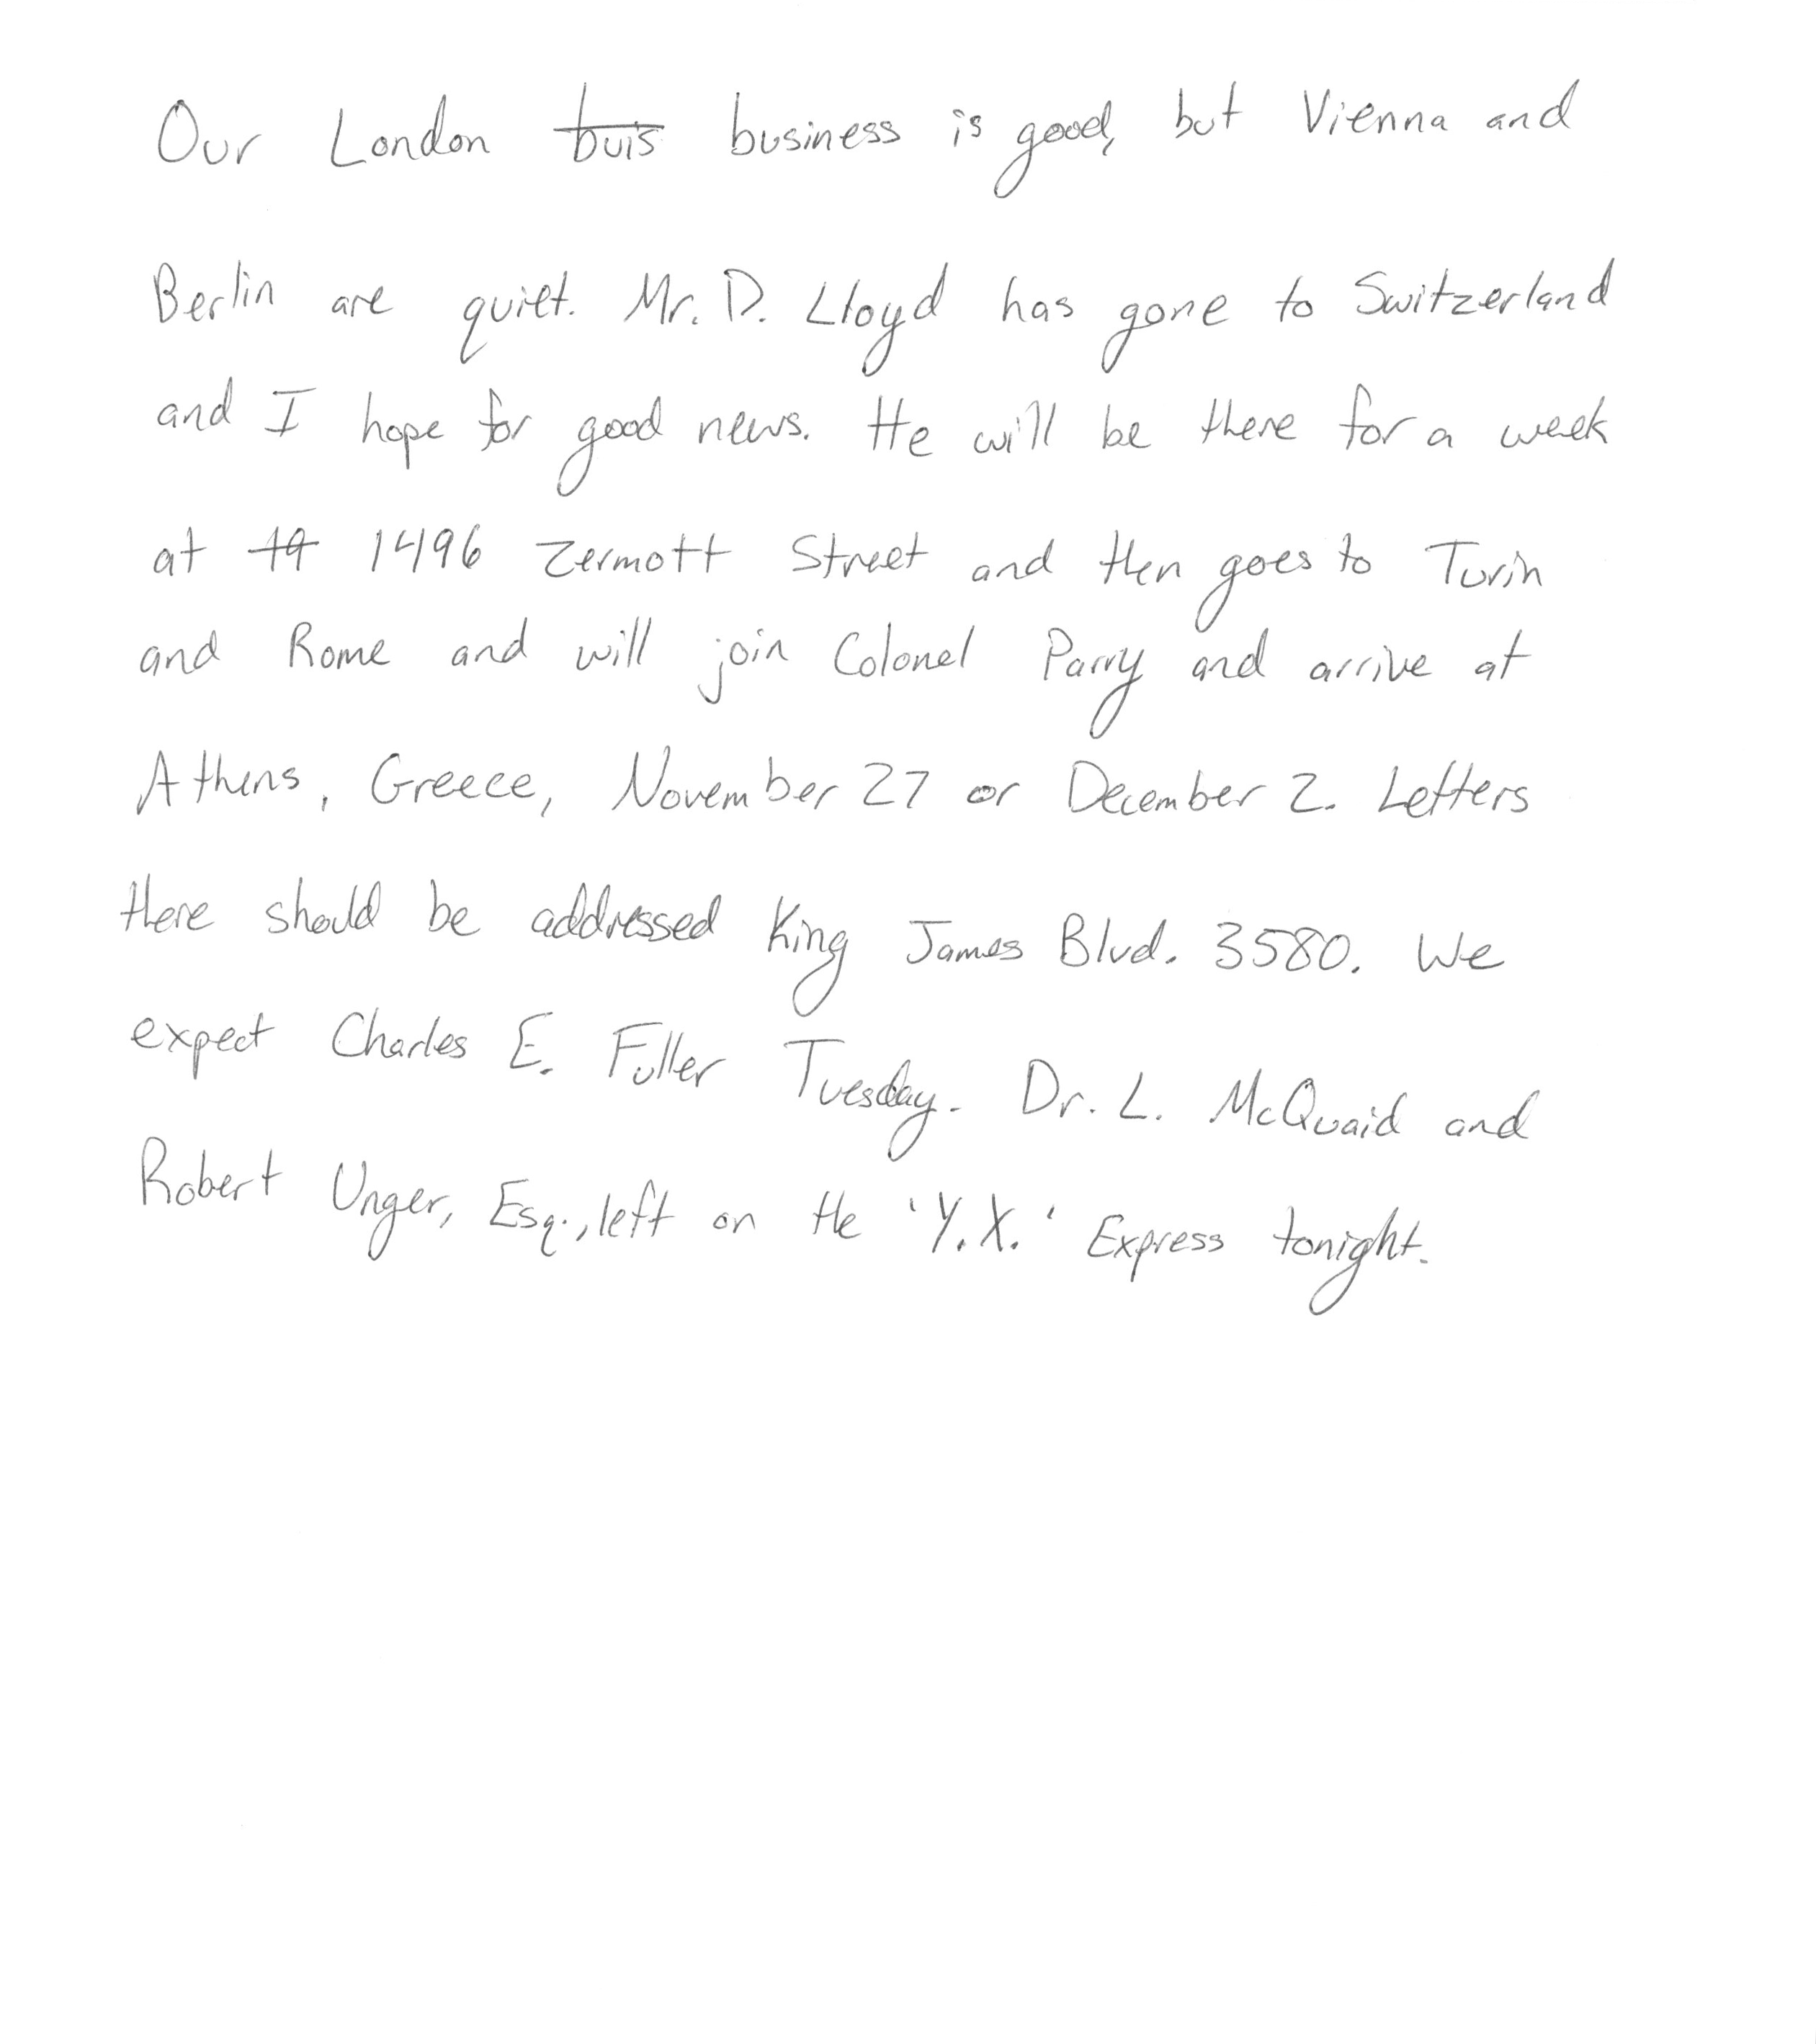 Our London buis business is good, but Vienna and
Berlin are quiet. Mr. D. Lloyd has gone to Switzerland
and I hope for good news. He will be there for a week
at 19 1496 Zermott Street and then goes to Turin
and Rome and will join Colonel Parry and arrive at
Athens, Greece, November 27 or December 2. Letters
there should be addressed King James Blvd. 3580. We
expect Charles E. Fuller Tuesday. Dr. L. McQuaid and
Robert Unger, Esq., left on the 'Y.X.' Express tonight.